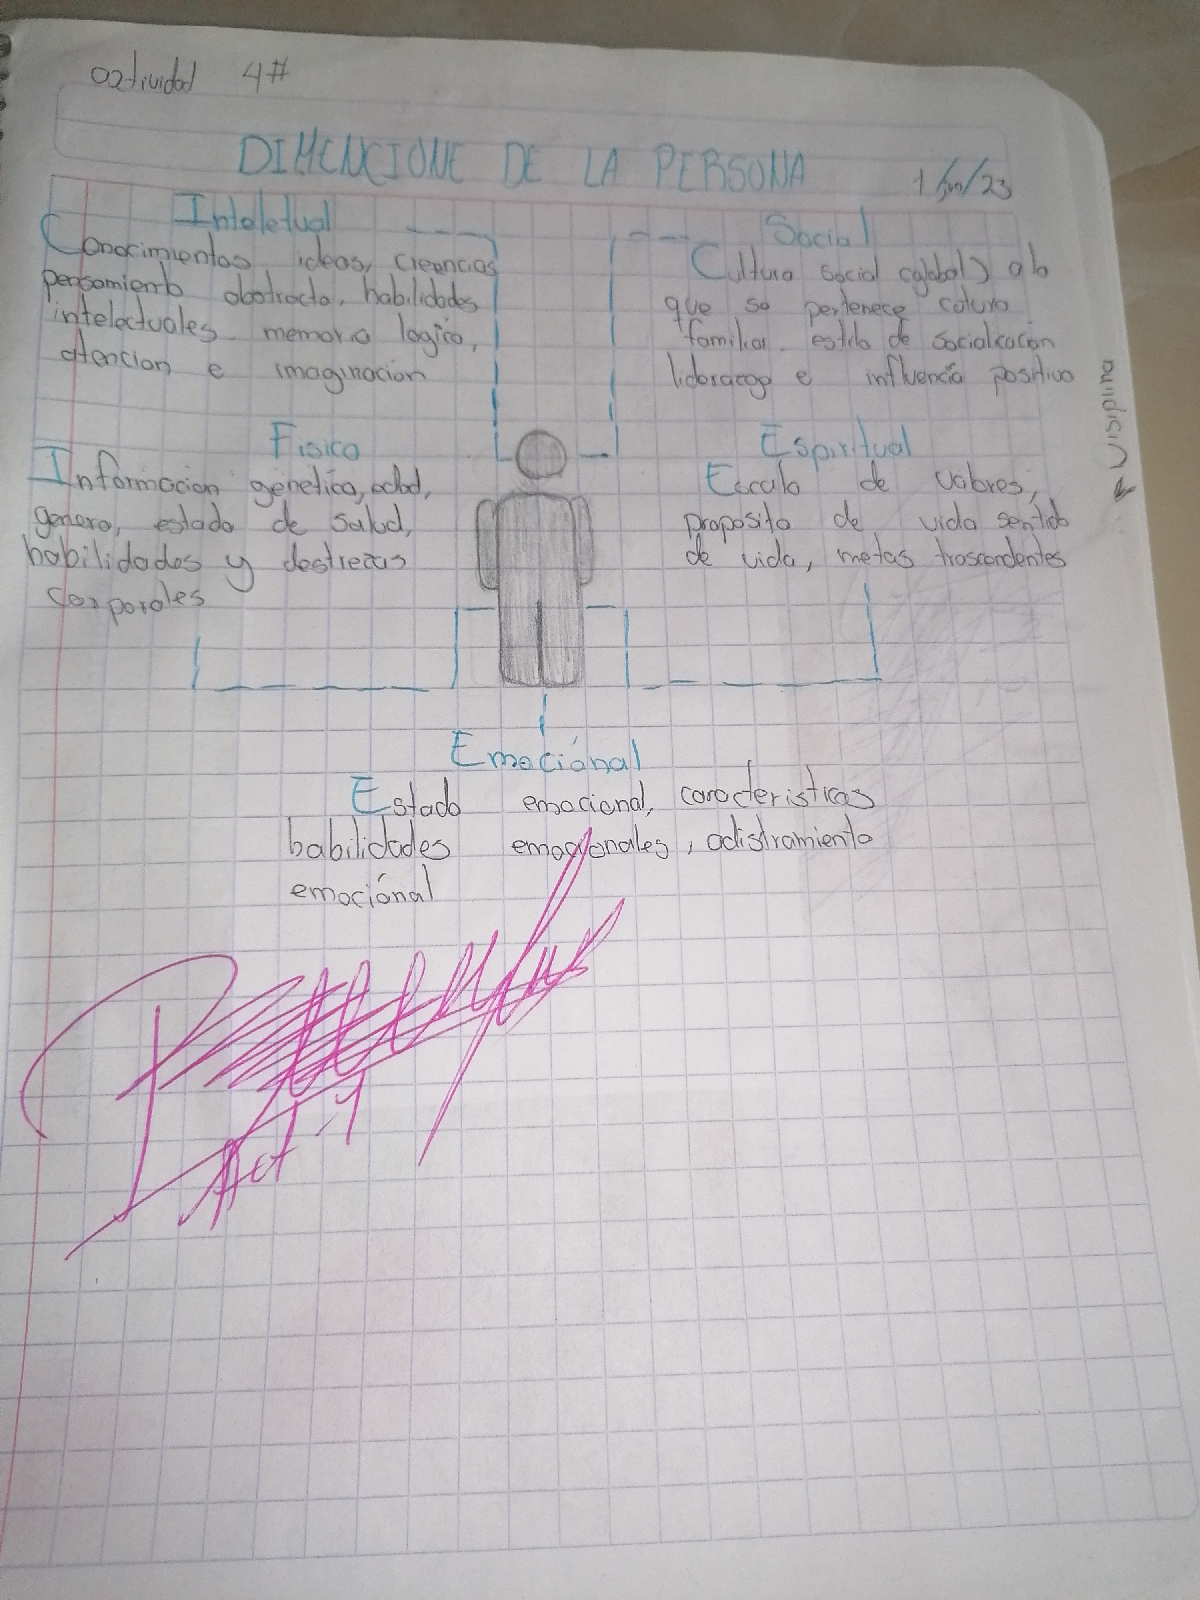 actividad 4#
DIMENCIONE DE LA PERSONA
1/jun/23
Inteletual
Conocimientos ideas, ciencias
pensamiento abstracto, habilidades
intelectuales memoria logica,
atencion e imaginacion
Social
Cultura social (global) a la
que se pertenece cultura
familiar, estilo de socialización
e influencia positiva
Disiplina
Fisica
Informacion genetica, edad,
genero, estado de salud,
habilidades y destrezas
corporales
Espiritual
Escala de valores,
proposito de vida sentido
de vida, metas trascendentes
Emociónal
Estado emocional, caracteristicas
habilidades emocionales, adistramiento
emociónal
Act-1